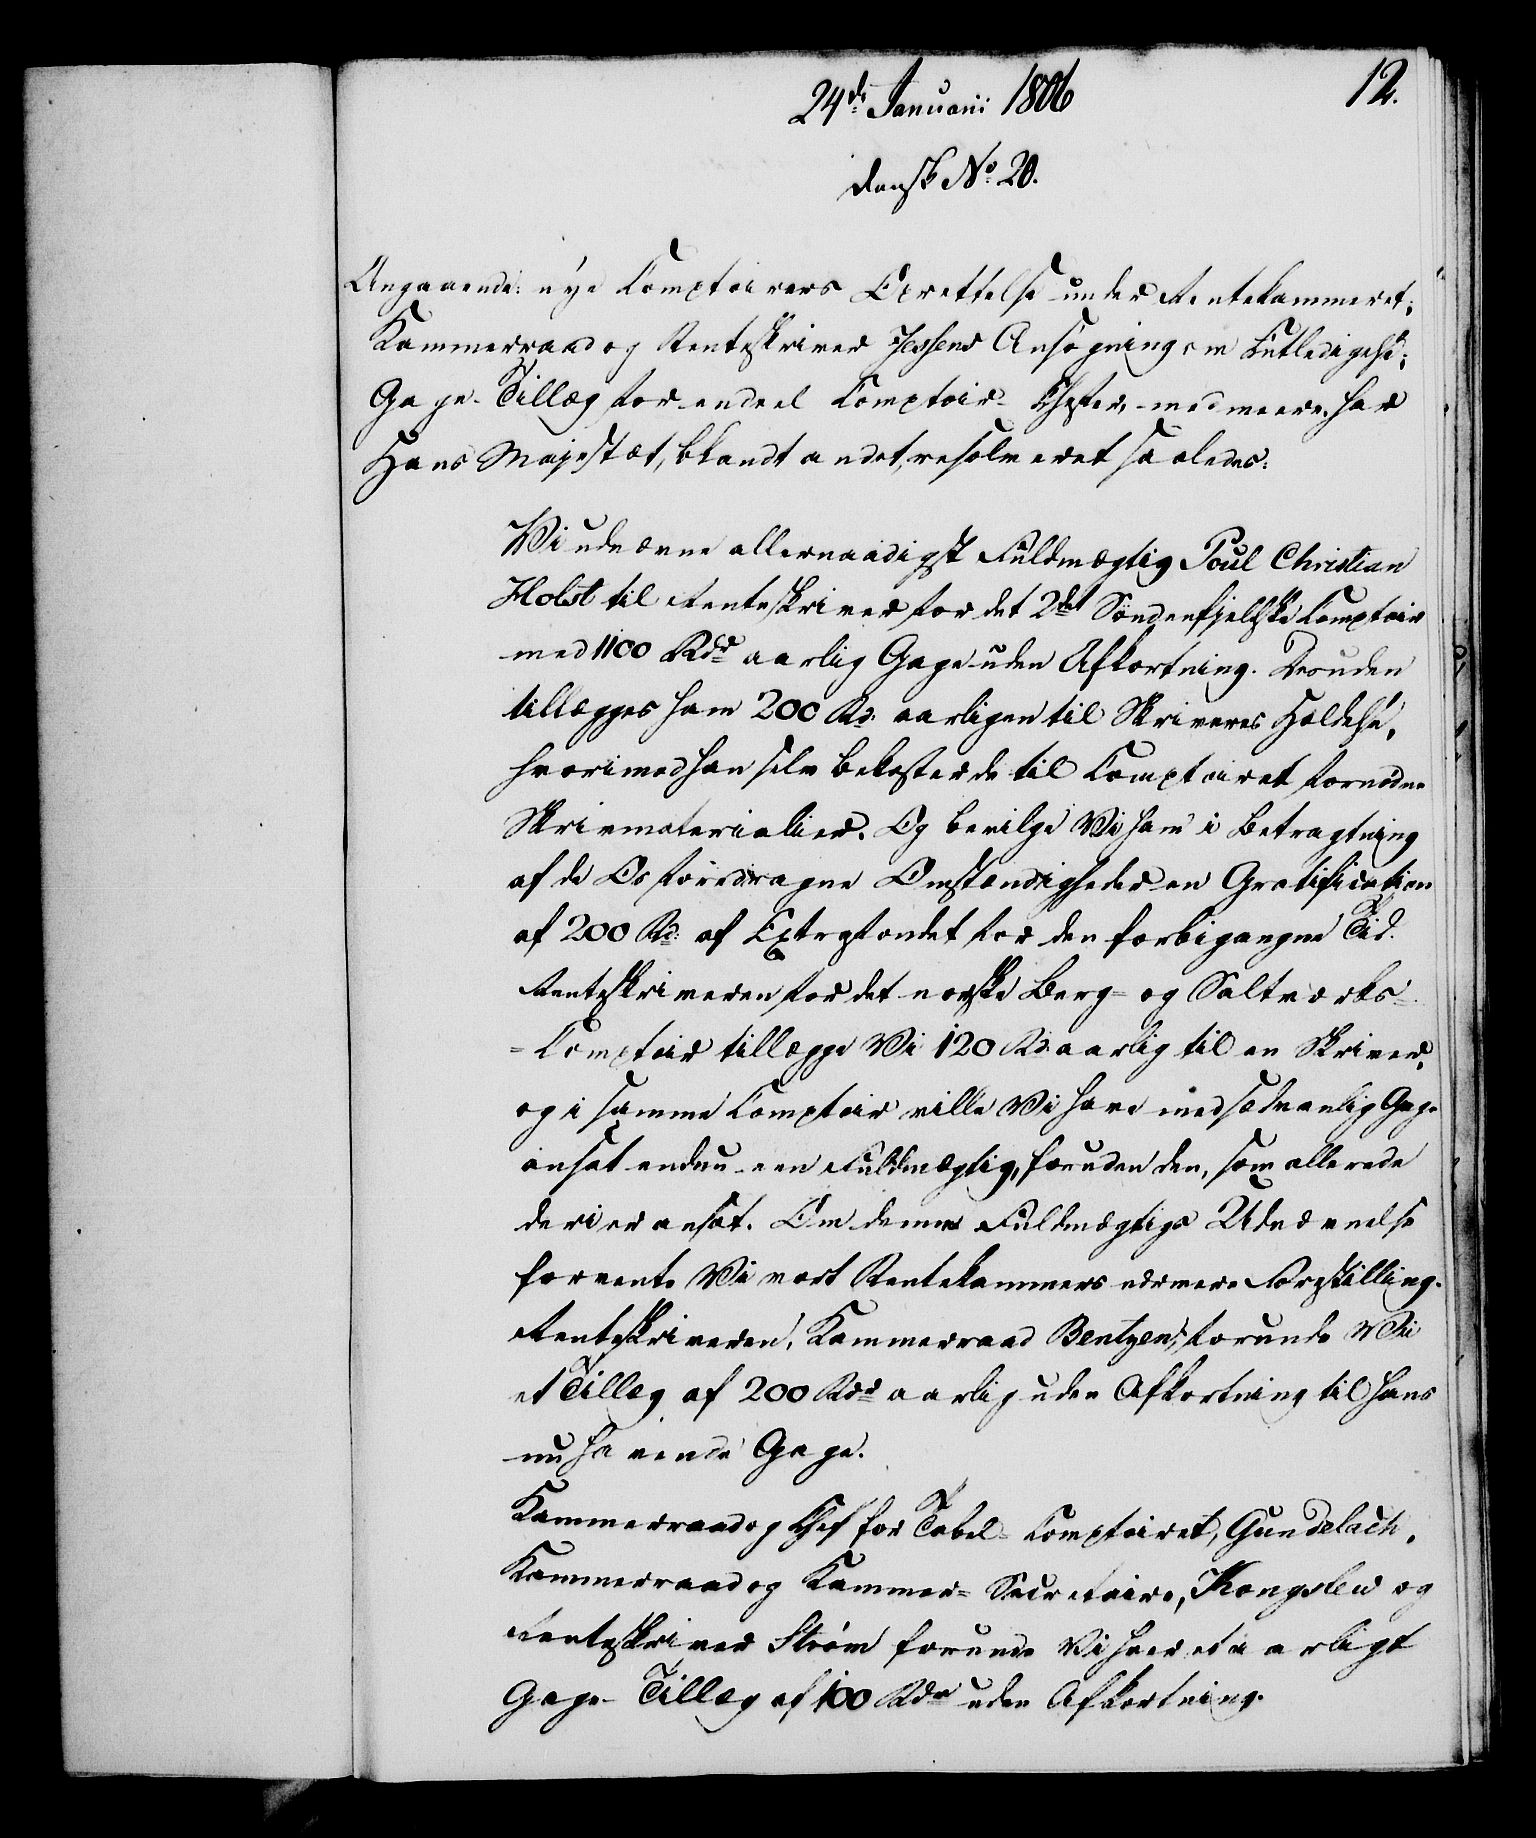 12.
24de Januarii 1806
Dansk No 20.
Angaaende: nye Comptoirers Oprettelse under Rentekammeret;
Kammerraad og Renteskriver Jessens Ansøgning om Entledigelse;
Gage-Tillæg for endeel Comptoir-Chefer, med meere, har
Hans Majestæt, blandt andet, resolveret saaledes:
Vi udnævne allernaadigst Fuldmægtig Poul Christian
Holst til Renteskriver for det 2det Søndenfjeldske Comptoir
med 1100 Rdr aarlig Gage uden Afkortning. Desuden
tillægges ham 200 Rd. aarligen til Skriveres Holdelse,
hvorimod han selv bekoster de til Comptoiret fornødne
Skrivmaterialier. Og bevilge Vi ham i Betragtning
af de Os foredragne Omstændigheder en Gratification
af 200 Rd. af Extrafondet for den forbigangne Tid.
Renteskriveren for det norske Berg- og Saltværks-
-Comptoir tillægge Vi 120 Rd. aarlig til en Skriver,
og i samme Comptoir ville Vi have med sædvanlig Gage
ansat endnu een Fuldmægtig, foruden den, som allerede
deri er ansat. Om denne Fuldmægtigs Udnævnelse
forvente Vi vort Rentekammers nærmere Forestilling.
Renteskriveren, Kammerraad Bentzen, forunde Vi
et Tillæg af 200 Rdr aarlig uden Afkortning til hans
nuhavende Gage.
Kammerraad og Chef for Tabel-Comptoiret, Gundelach,
Kammerraad og Kammer-Secretaire, Kongslew og
Renteskriver Strøm forunde Vi hver et aarligt
Gage-Tillæg af 100 Rdr uden Afkortning.